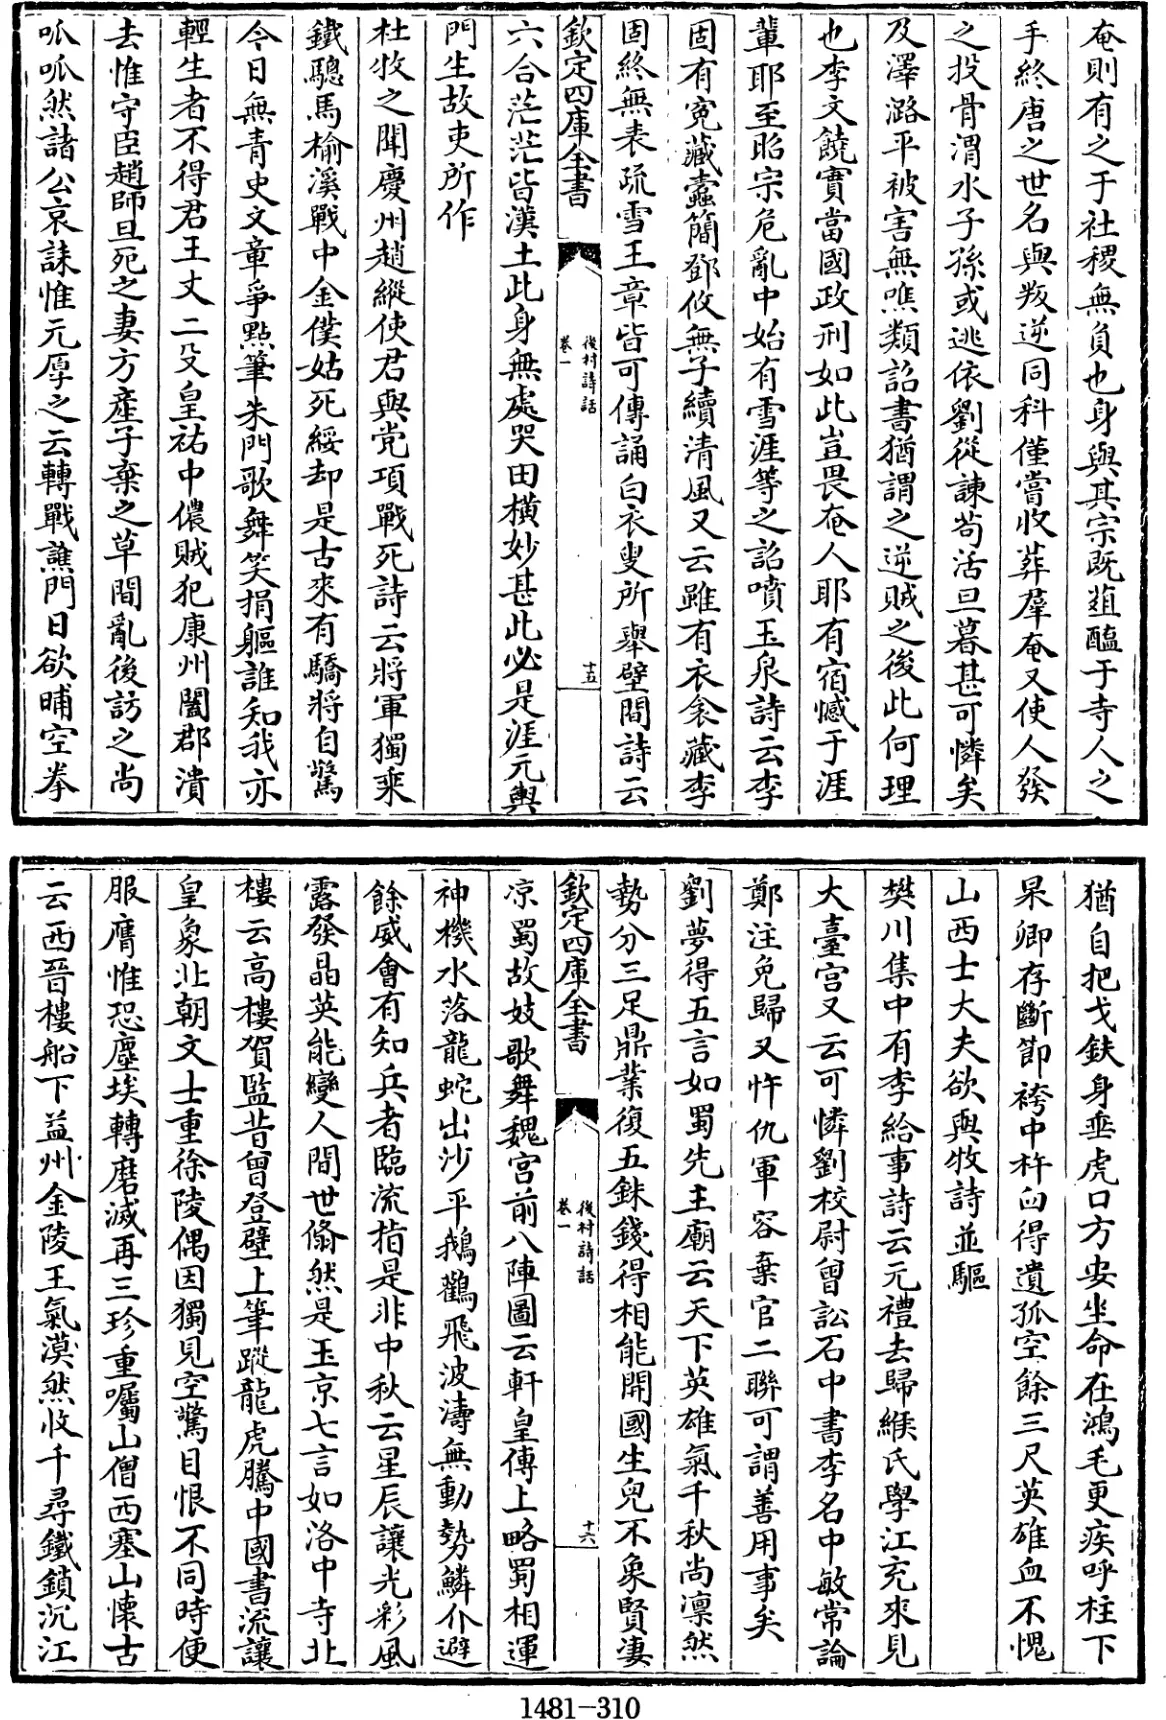 奄則有之于社稷無負也身與其宗既葅醢于寺人之
手終唐之世名與叛逆同科僅嘗收葬羣奄又使人發
之投骨渭水子孫或逃依劉從諫苟活旦暮甚可憐矣
及澤潞平被害無噍類詔書猶謂之逆賊之後此何理
也李文饒實當國政刑如此豈畏奄人耶有宿憾于涯
輩耶至昭宗危亂中始有雪涯等之詔噴玉泉詩云李
固有寃藏蠧簡鄧攸無子續清風又云雖有衣衾藏李
固終無表疏雪王章皆可傳誦白衣叟所舉壁間詩云
欽定四庫全書
後村詩話
卷一
十五
六合茫茫皆漢土此身無處哭田橫妙甚此必是涯元輿
門生故吏所作
杜牧之聞慶州趙縱使君與党項戰死詩云將軍獨乘
鐵驄馬榆溪戰中金僕姑死綏却是古來有驕將自驚
今日無青史文章爭點筆朱門歌舞笑捐軀誰知我亦
輕生者不得君王丈二殳皇祐中儂賊犯康州闔郡潰
去惟守臣趙師旦死之妻方產子棄之草間亂後訪之尚
呱呱然諸公哀誄惟元厚之云轉戰譙門日欲晡空拳
猶自把戈鈇身垂虎口方安坐命在鴻毛更疾呼柱下
杲卿存斷節袴中杵臼得遺孤空餘三尺英雄血不愧
山西士大夫欲與牧詩並驅
樊川集中有李給事詩云元禮去歸緱氏學江充來見
大臺宮又云可憐劉校尉曾訟石中書李名中敏常論
鄭注免歸又忤仇軍容棄官二聯可謂善用事矣
劉夢得五言如蜀先主廟云天下英雄氣千秋尚凛然
勢分三足鼎業復五銖錢得相能開國生兒不象賢凄
欽定四庫全書
後村詩話
卷一
十六
凉蜀故妓歌舞魏宮前八陣圖云軒皇傳上略蜀相運
神機水落龍蛇出沙平鵝鸛飛波濤無動勢鱗介避
餘威會有知兵者臨流指是非中秋云星辰讓光彩風
露發晶英能變人間世翛然是玉京七言如洛中寺北
樓云高樓賀監昔曾登壁上筆蹤龍虎騰中國書流讓
皇象北朝文士重徐陵偶因獨見空驚目恨不同時便
服膺惟恐塵埃轉磨滅再三珍重囑山僧西塞山懷古
云西晉樓船下益州金陵王氣漠然收千尋鐵鎖沉江
1481-310